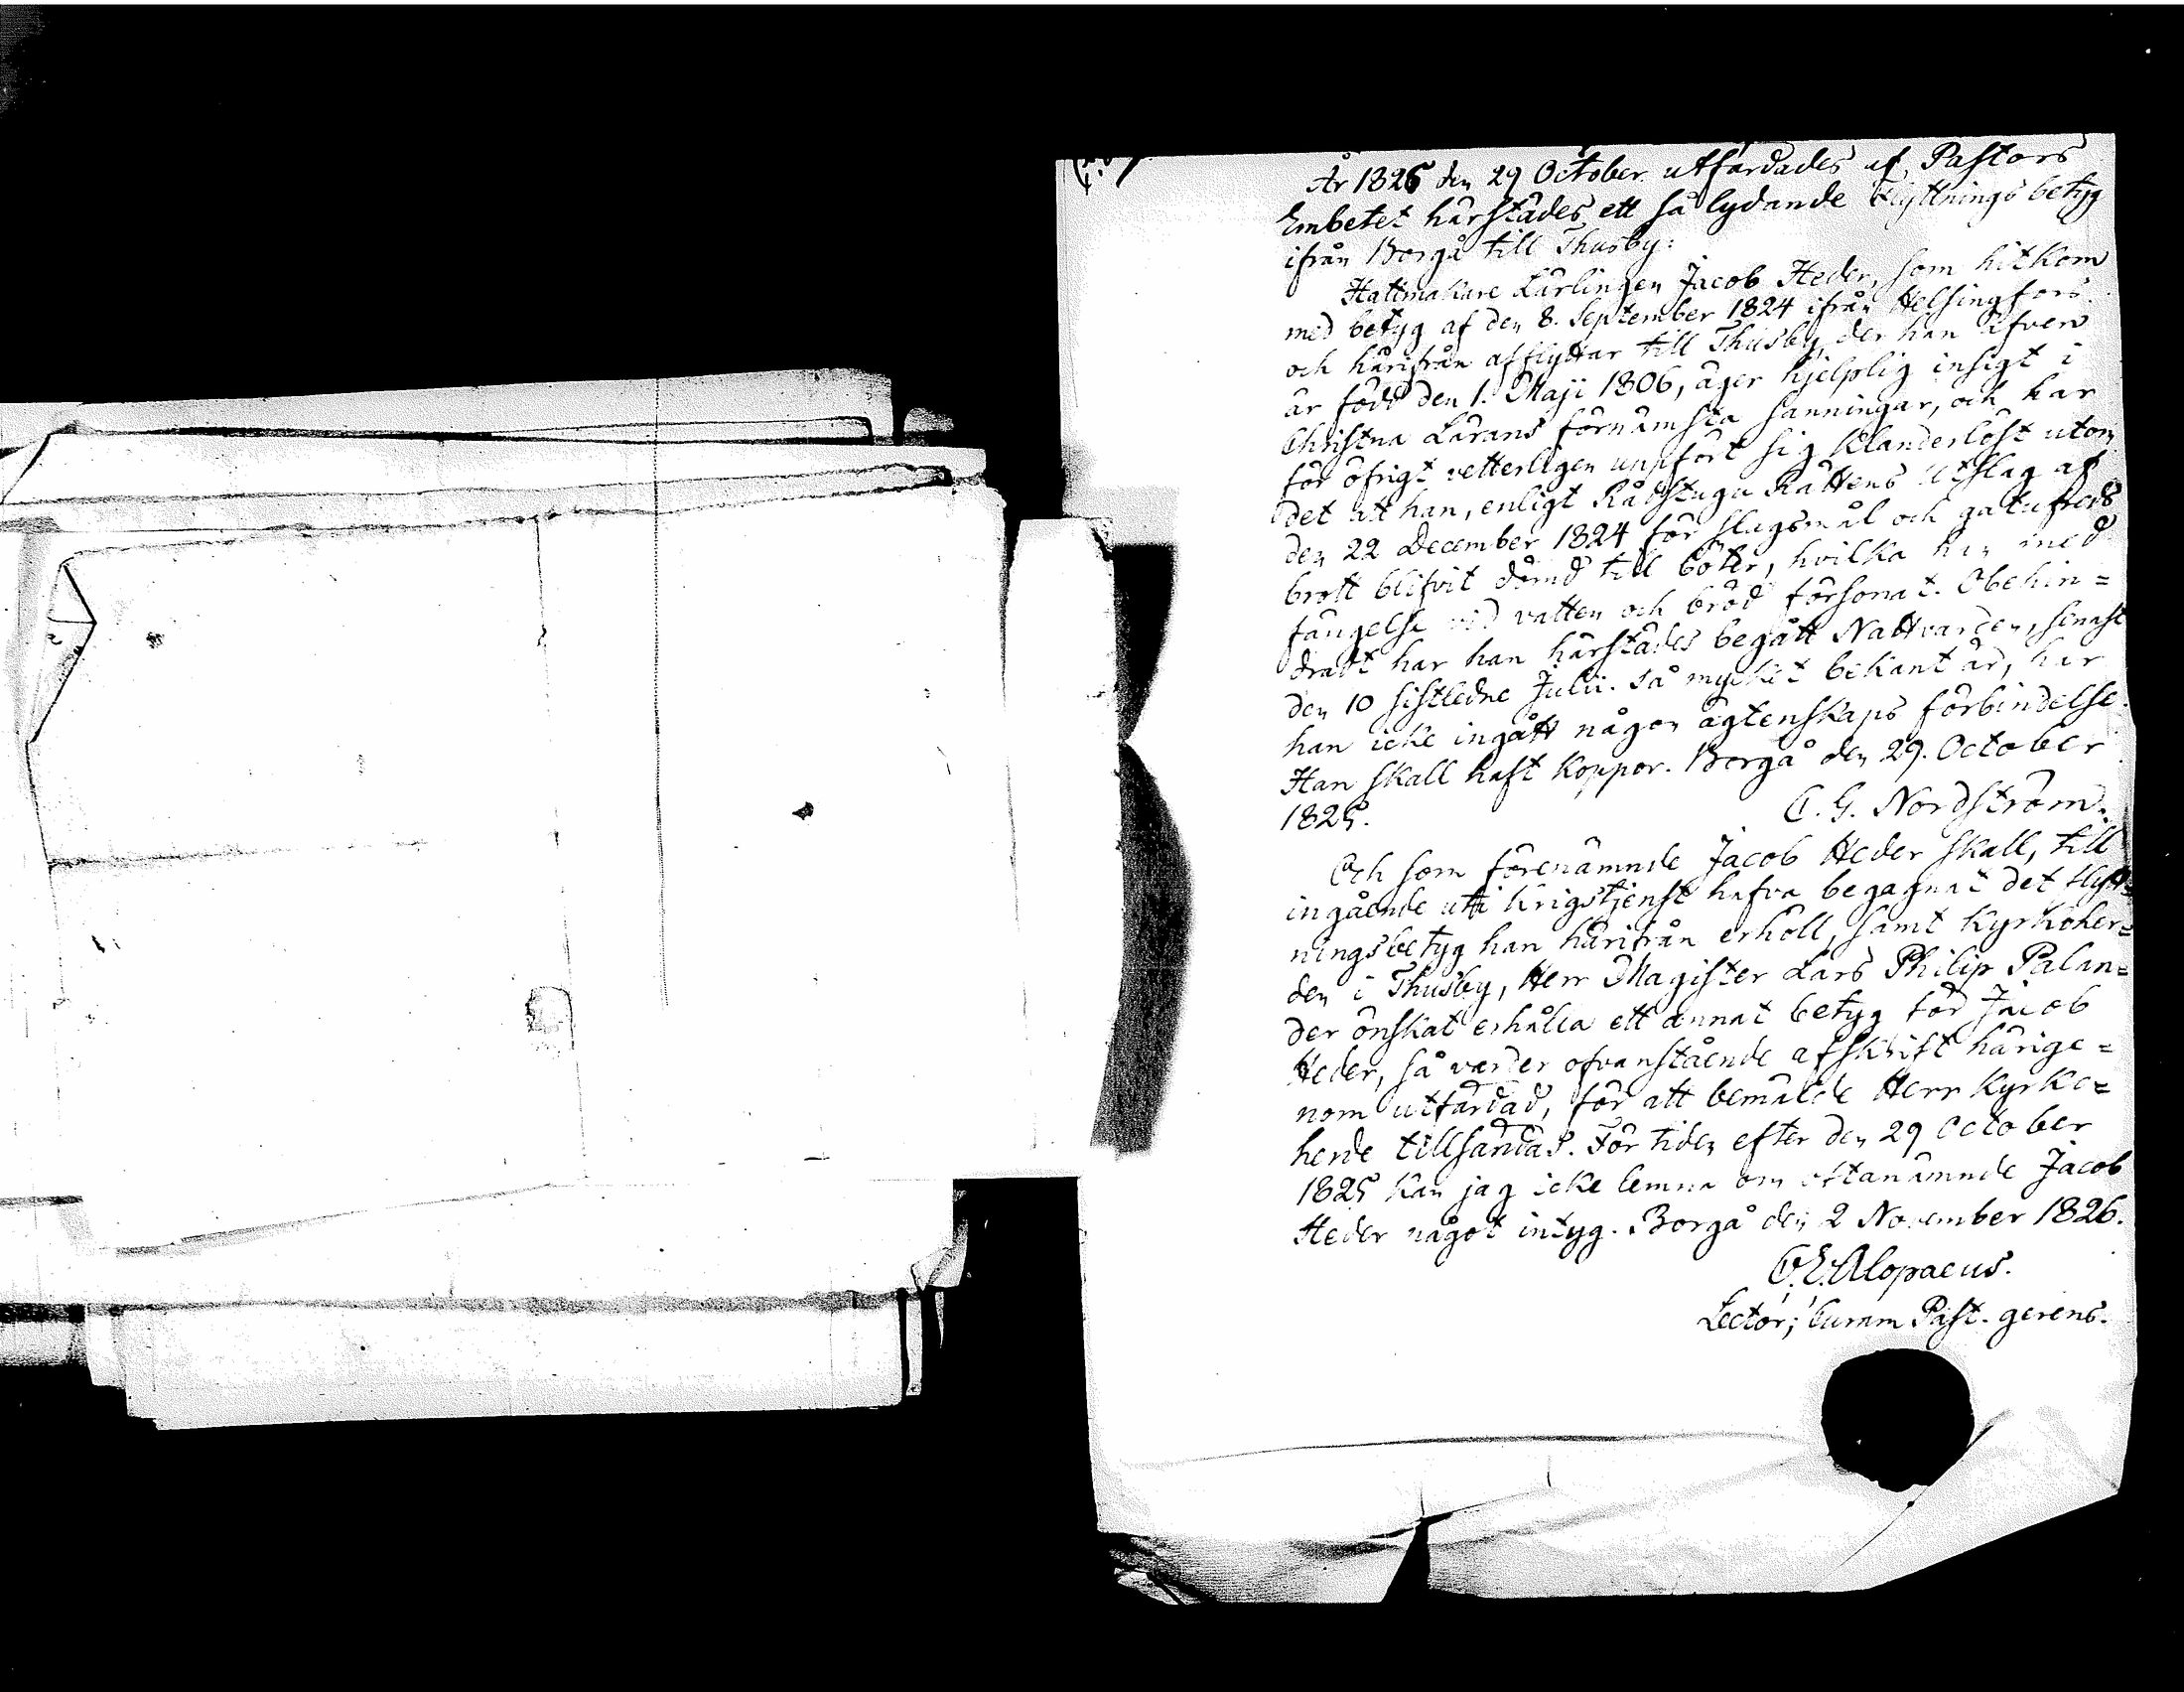 År 1825 den 29 October utfärdades af Pastors
Embetet härstädes ett så lydande Flyttningsbetyg
ifrån Borgå till Thusby:
Hattmakare Lärlingen Jacob Heder, som hitkom
med betyg af den 8. September 1824 ifrån Helsingfors
och härifrån afflyttar till Thusby, der han äfven
är född den 1. Maji 1806, äger hjelplig insigt i
Christna Lärans förnämsta sanningar, och har
för öfrigt vetterligen uppfört sig klanderlöst utom
det att han, enligt RådstuguRättens Utslag af
den 22 December 1824 för slagsmål och gatufreds
brott blifvit dömd till böter, hvilka han med
fängelse vid vatten och bröd försonat. Obehin=
dradt har han härstädes begått Nattvarden, sinast
den 10 sistledne Julii. Så mycket bekant är, har
han icke ingått någon ägtenskaps förbindelse.
Han skall haft koppor. Borgå den 29. October
1825.
C. G. Nordström.
Och som förenämnde Jacob Heder skall, till
ingående uti krigstjenst hafva begagnat det flytt=
ningsbetyg han härifrån erhöll, samt Kyrkoher=
den i Thusby, Herr Magister Lars Philip Palan=
der önskat erhålla ett annat betyg för Jacob
Heder, så varder ofvanstående afskrift härige=
nom utfärdad, för att bemälde Herr Kyrko=
herde tillsändas. För tiden efter den 29 October
1825 kan jag icke lemna om oftanämnde Jacob
Heder något intyg. Borgå den 2 November 1826.
C. E. Alopaeus.
Lector; Curam Past. gerens.